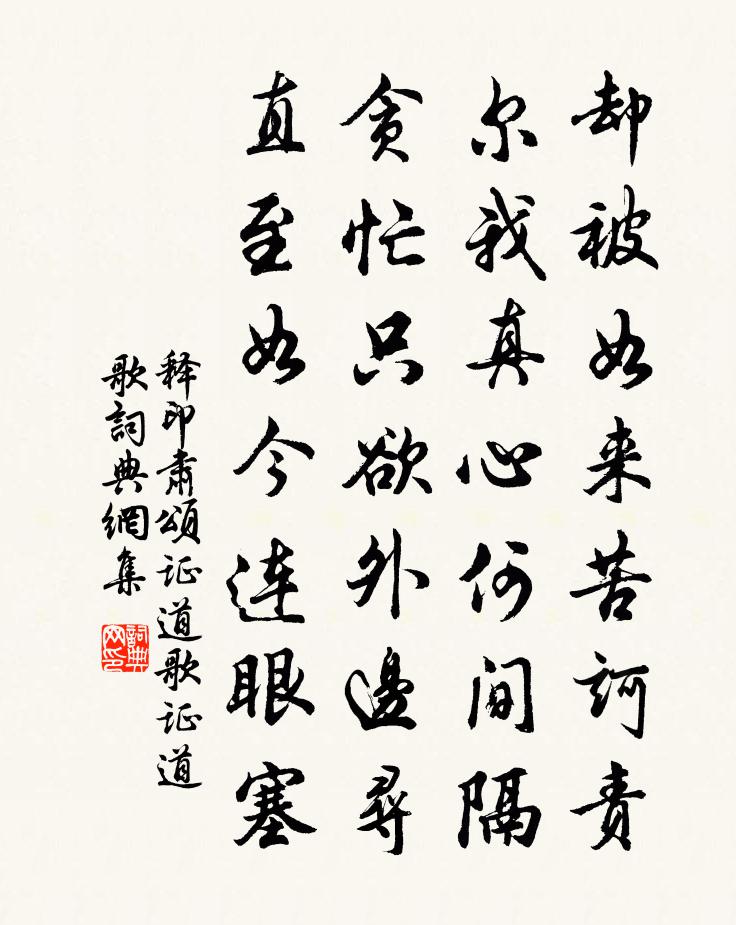 却被如来苦訶责
尔我真心何间隔
贪忙只欲外邊尋
直至如今连眼塞
释印肃頌证道歌证道
歌詞典網集
詞典
网印